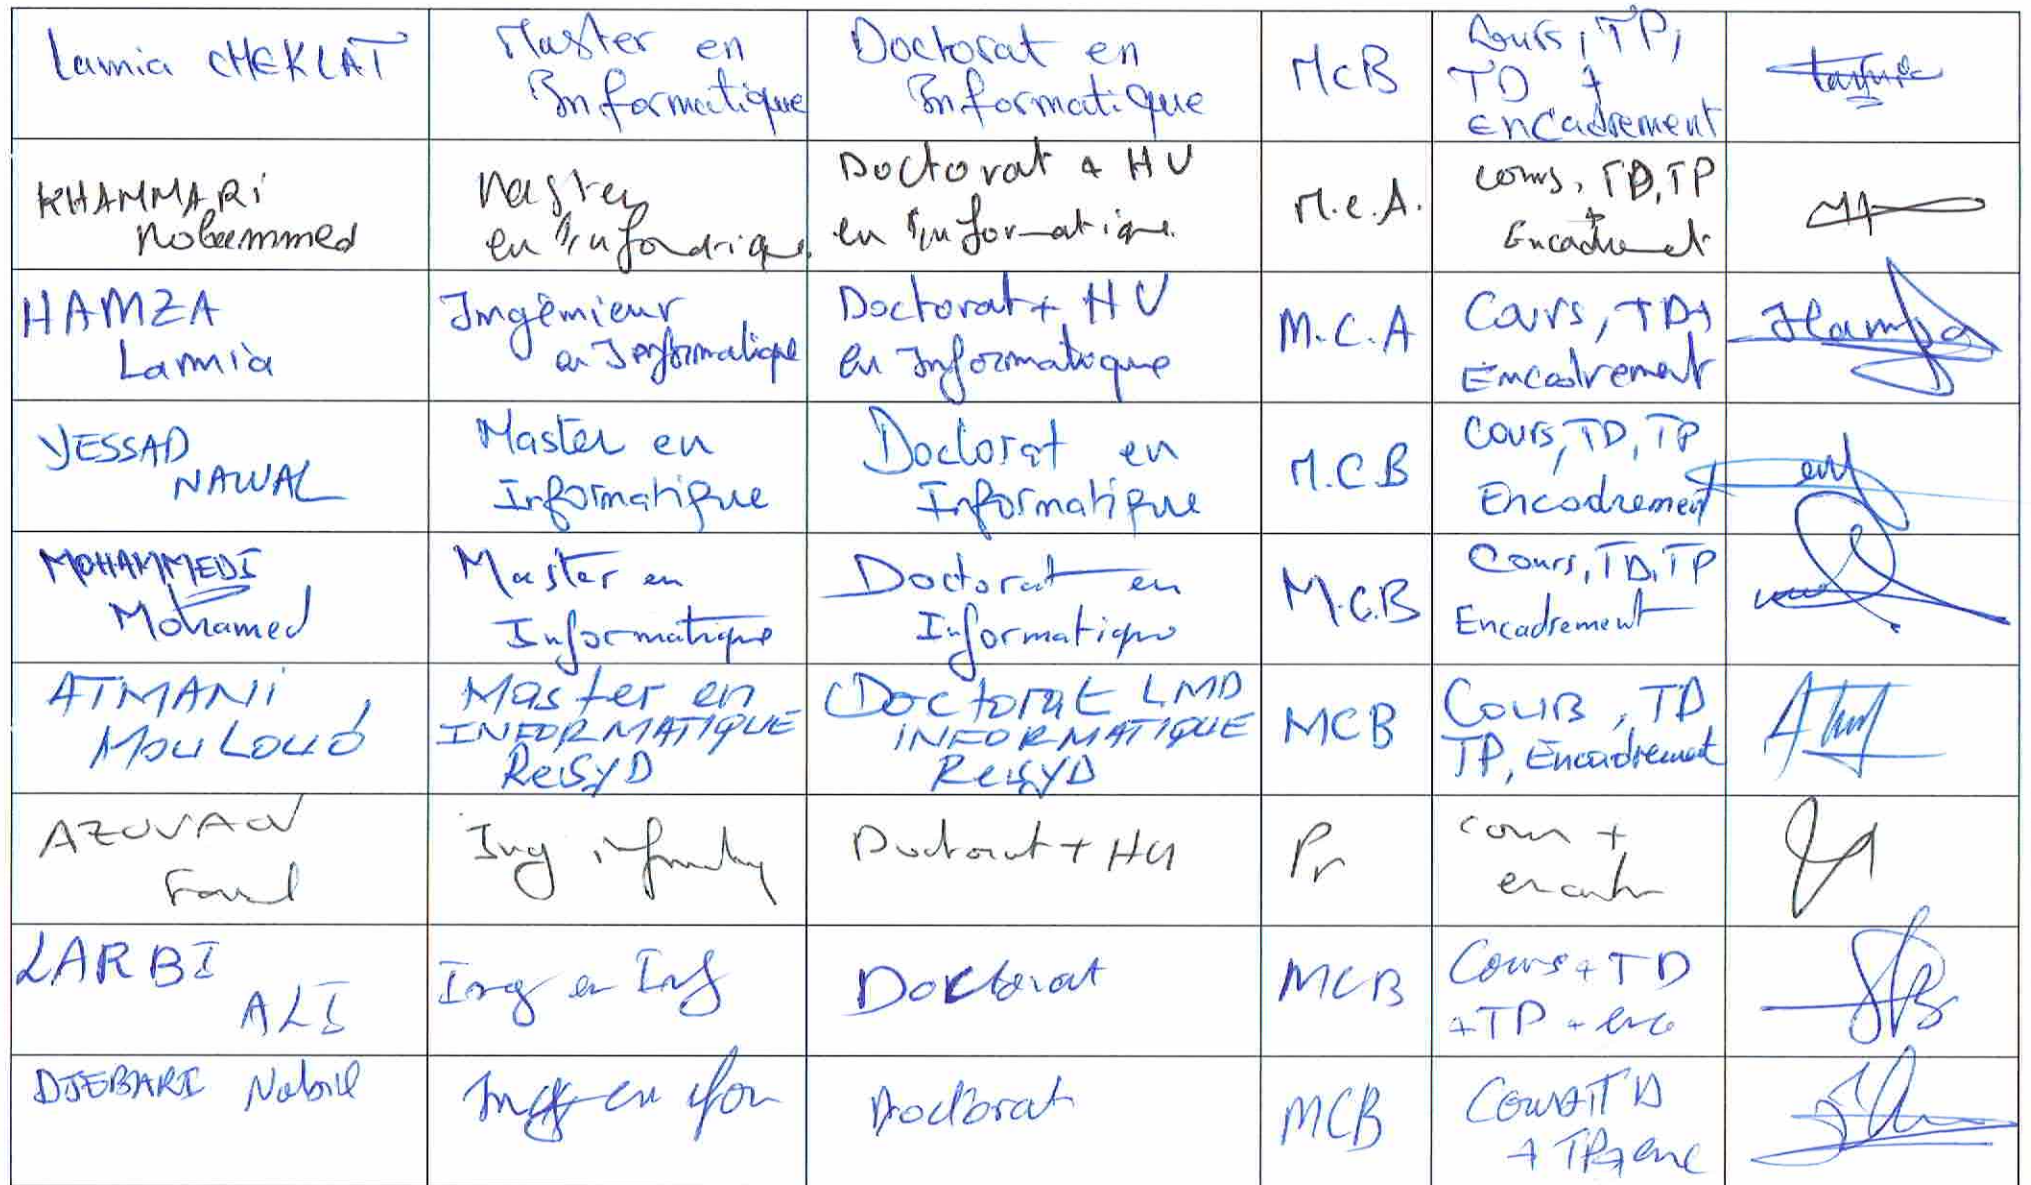 Lamia CHEKLAT
Master en
Informatique
Doctorat en
Informatique
McB
Cours, TP,
TD +
encadrement
KHAMMARI
Mohammed
Master
en Informatique
Doctorat + HU
en Informatique
M.C.A.
Cours, TD, TP
+
Encadrement
HAMZA
Lamia
Ingénieur
en Informatique
Doctorat + HU
en Informatique
M.C.A
Cours, TD+
Encadrement
YESSAD
NAWAL
Master en
Informatique
Doctorat en
Informatique
M.C.B
Cours, TD, TP
Encadrement
MOHAMMEDI
Mohamed
Master en
Informatique
Doctorat en
Informatique
M.C.B
Cours, TD, TP
Encadrement
ATMANi
MouLouD
Master en
INFORMATIQUE
ReSyD
Doctorat LMD
iNFORMATIQUE
ReSyD
MCB
Cours, TD
TP, Encadrement
AZOUAOU
Ing
Doctorat + HU
Pr
cours +
LARBI
ALI
Ing en Inf
Doctorat
MCB
Cours + TD
+ TP + enc
DJEBARI Nabil
Ing en
Doctorat
MCB
Cours+TD
+ TP+enc